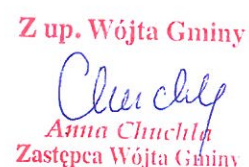 Z up. Wójta Gminy
Chuchla
Anna Chuchla
Zastępca Wójta Gminy